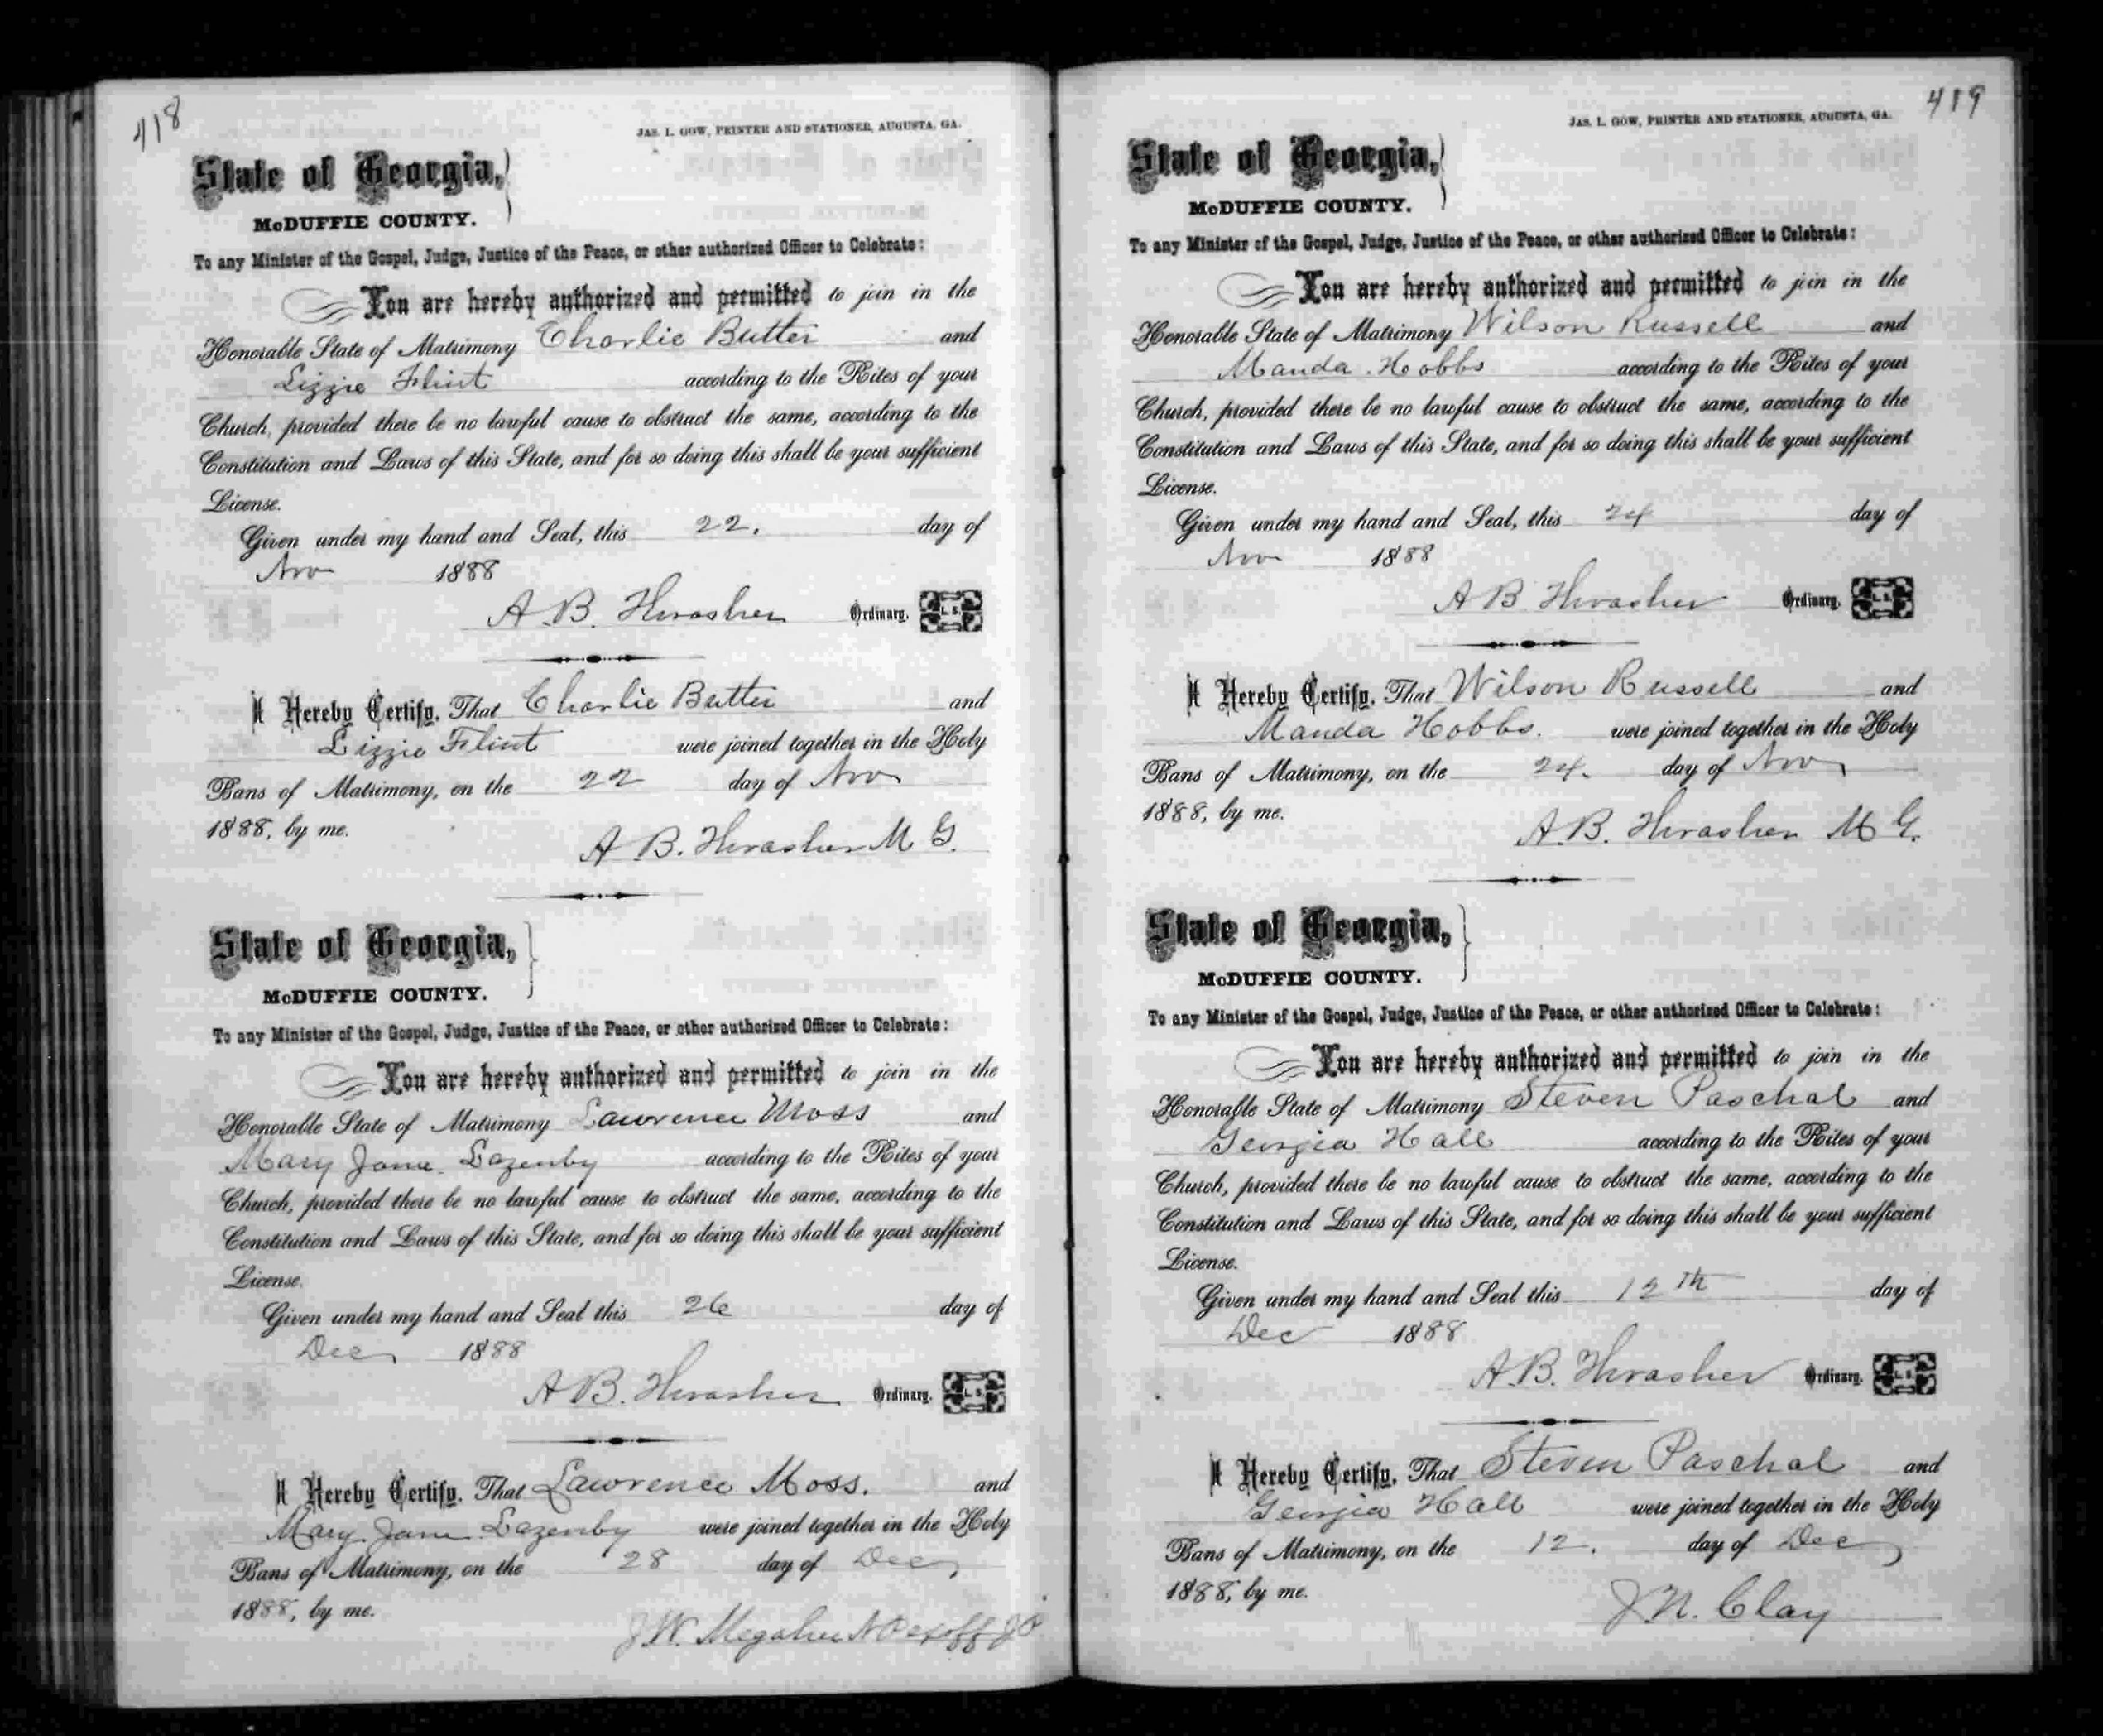 418
JAS. L. GOW, PRINTER AND STATIONER, AUGUSTA, GA.
State of Georgia,
McDUFFIE COUNTY.
To any Minister of the Gospel, Judge, Justice of the Peace, or other authorized Officer to Celebrate:
You are hereby authorized and permitted to join in the
Honorable State of Matrimony Charlie Butler and
Lizzie Flint according to the Rites of your
Church, provided there be no lawful cause to obstruct the same, according to the
Constitution and Laws of this State, and for so doing this shall be your sufficient
License.
Given under my hand and Seal, this 22. day of
Nov 1888
A B. Thrasher Ordinary. L. S.
I Hereby Certify, That Charlie Butler and
Lizzie Flint were joined together in the Holy
Bans of Matrimony, on the 22 day of Nov
1888, by me.
A B. Thrasher M G.
State of Georgia,
McDUFFIE COUNTY.
To any Minister of the Gospel, Judge, Justice of the Peace, or other authorized Officer to Celebrate:
You are hereby authorized and permitted to join in the
Honorable State of Matrimony Lawrence Moss and
Mary Jane Lazenby according to the Rites of your
Church, provided there be no lawful cause to obstruct the same, according to the
Constitution and Laws of this State, and for so doing this shall be your sufficient
License.
Given under my hand and Seal this 26 day of
Dec 1888
A B. Thrasher Ordinary. L. S.
I Hereby Certify, That Lawrence Moss. and
Mary Jane Lazenby were joined together in the Holy
Bans of Matrimony, on the 28 day of Dec
1888, by me.
J W. Megahee N P exoff J P
419
JAS. L. GOW, PRINTER AND STATIONER, AUGUSTA, GA.
State of Georgia,
McDUFFIE COUNTY.
To any Minister of the Gospel, Judge, Justice of the Peace, or other authorized Officer to Celebrate:
You are hereby authorized and permitted to join in the
Honorable State of Matrimony Wilson Russell and
Manda Hobbs according to the Rites of your
Church, provided there be no lawful cause to obstruct the same, according to the
Constitution and Laws of this State, and for so doing this shall be your sufficient
License.
Given under my hand and Seal, this 24 day of
Nov 1888
A B Thrasher Ordinary. L. S.
I Hereby Certify, That Wilson Russell and
Manda Hobbs. were joined together in the Holy
Bans of Matrimony, on the 24. day of Nov
1888, by me.
A.B. Thrasher M G.
State of Georgia,
McDUFFIE COUNTY.
To any Minister of the Gospel, Judge, Justice of the Peace, or other authorized Officer to Celebrate:
You are hereby authorized and permitted to join in the
Honorable State of Matrimony Steven Paschal and
Georgia Hall according to the Rites of your
Church, provided there be no lawful cause to obstruct the same, according to the
Constitution and Laws of this State, and for so doing this shall be your sufficient
License.
Given under my hand and Seal this 12th day of
Dec 1888
A.B. Thrasher Ordinary. L. S.
I Hereby Certify, That Steven Paschal and
Georgia Hall were joined together in the Holy
Bans of Matrimony, on the 12. day of Dec
1888, by me.
J. N. Clay